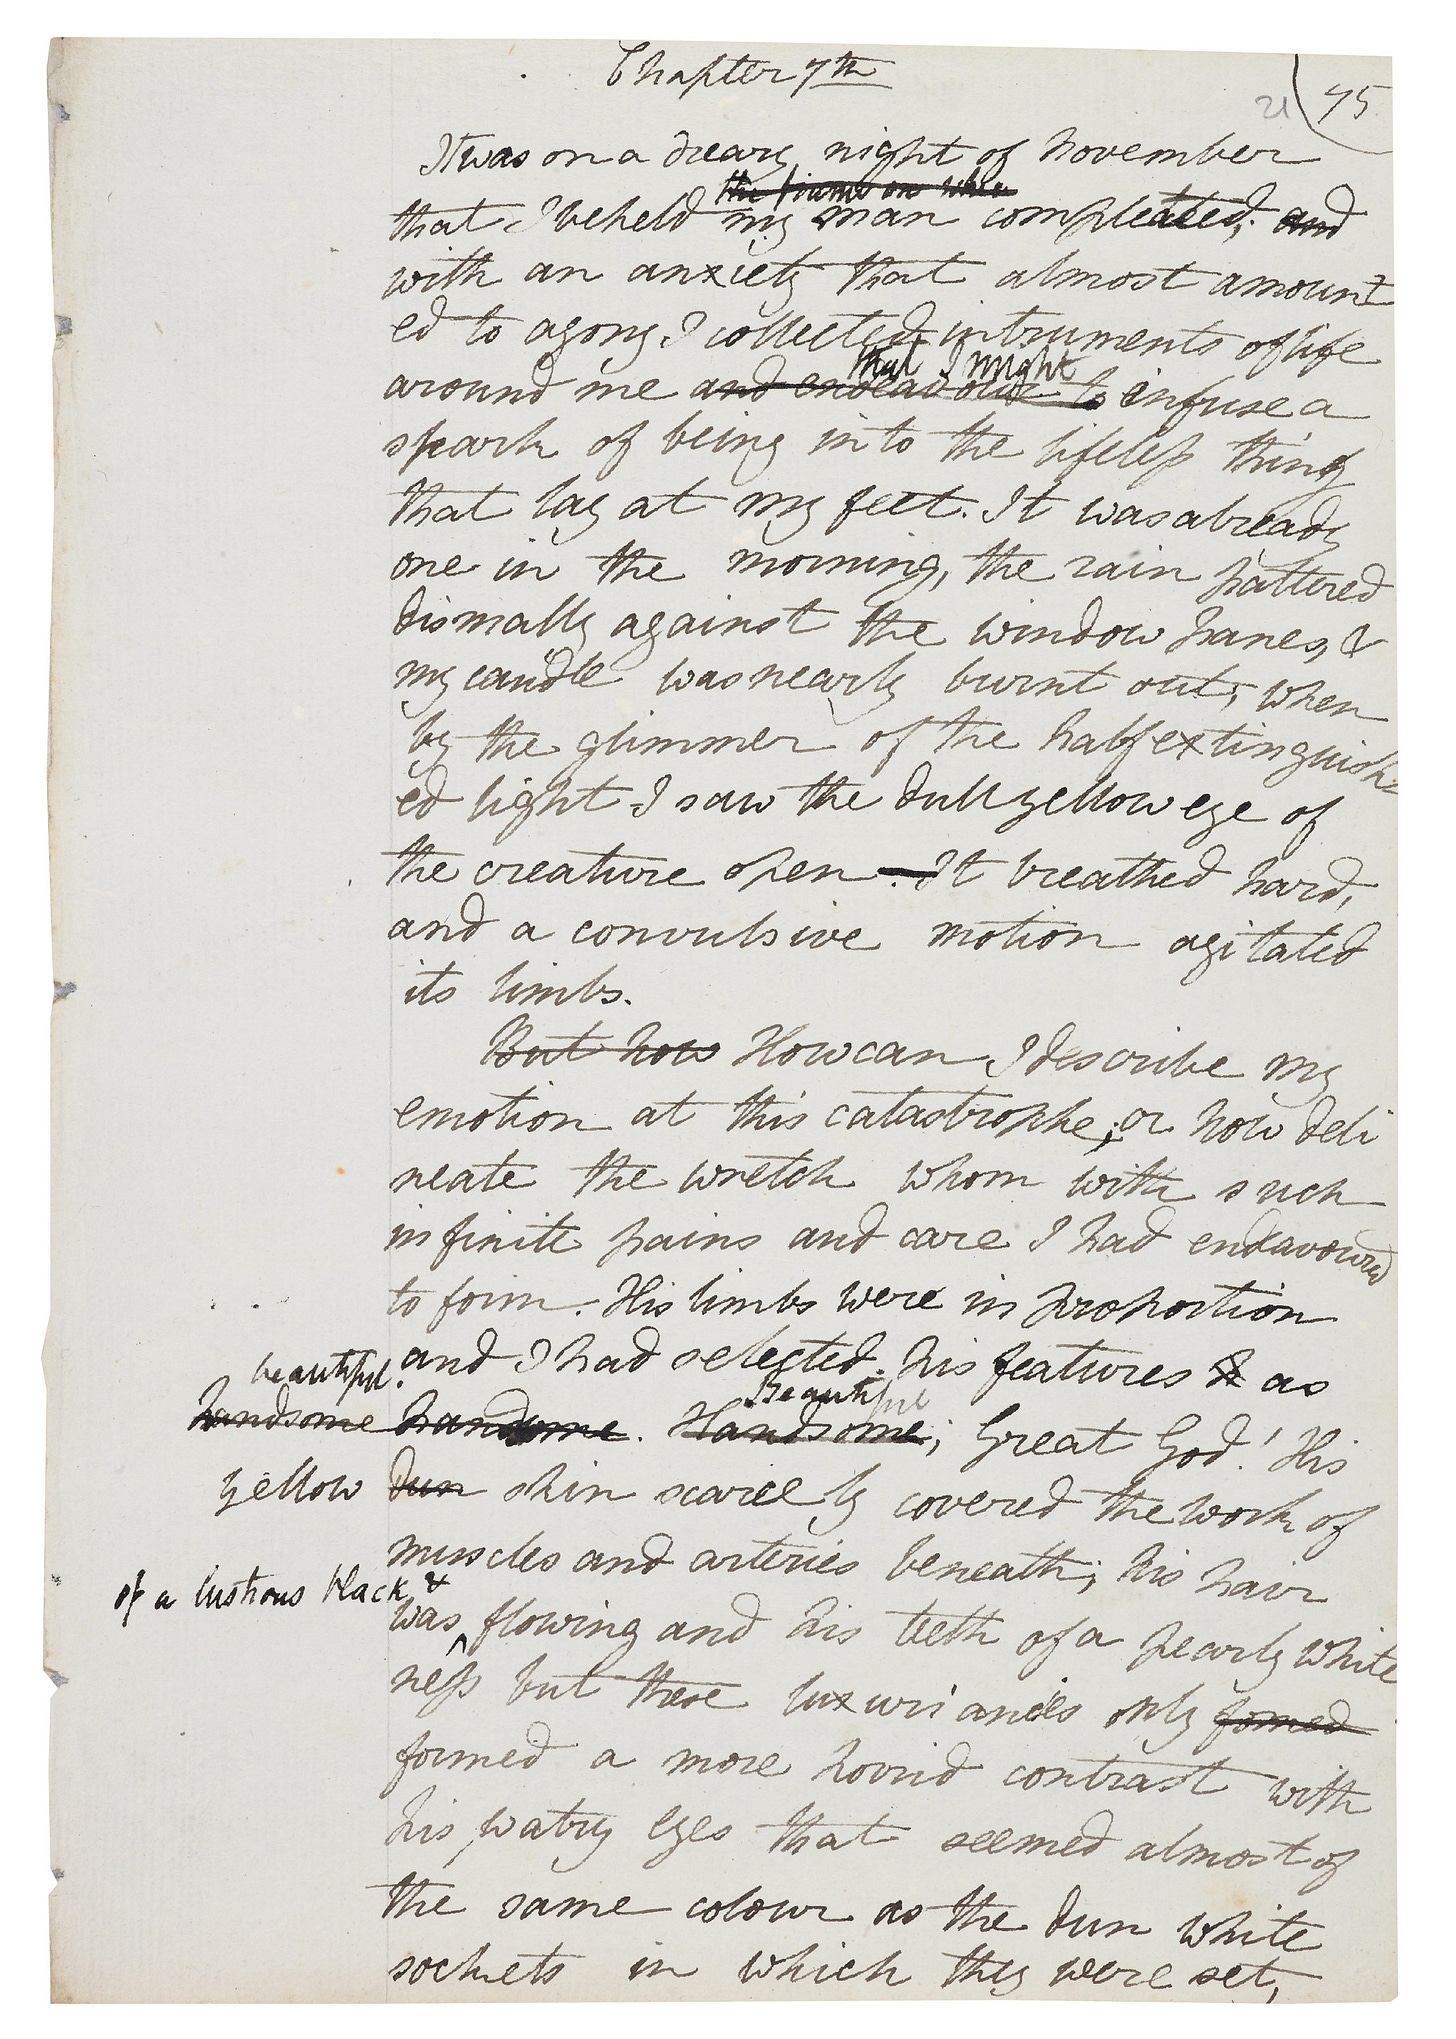 Chapter 7th
21
75
It was on a dreary night of November
the frame on whic
that I beheld my man compleated; and
with an anxiety that almost amount
ed to agony I collected instruments of life
that I might
around me and endeavour to infuse a
spark of being into the lifeless thing
that lay at my feet. It was already
one in the morning, the rain pattered
dismally against the window panes, &
my candle was nearly burnt out, when
by the glimmer of the half extinguish-
ed light I saw the dull yellow eye of
the creature open — It breathed hard,
and a convulsive motion agitated
its limbs.
But how How can I describe my
emotion at this catastrophe; or how deli
neate the wretch whom with such
infinite pains and care I had endavoured
to form. His limbs were in proportion
and I had selected his features & as
beautiful.
handsome handsome. Handsome; Great God! His
Beautiful
yellow dun skin scarcely covered the work of
muscles and arteries beneath; his hair
of a lustrous black &
was flowing and his teeth of a pearly white
ness but these luxuriancies only fomed
formed a more horrid contrast with
his watry eyes that seemed almost of
the same colour as the dun white
sockets in which they were set,